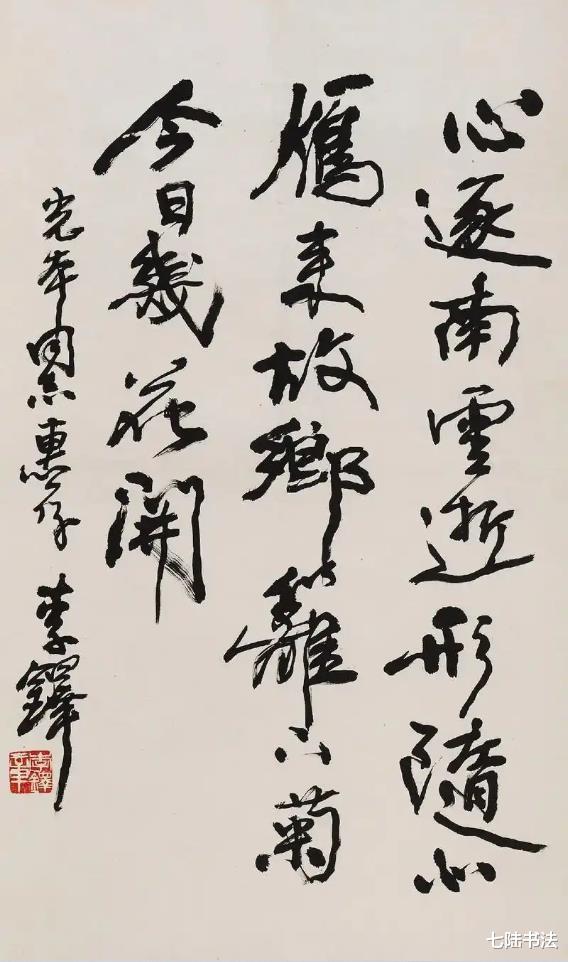 心逐南雲逝形隨北
雁来故鄉籬下菊
今日幾花開
光年同志惠存 李鐸
李鐸
七陆书法